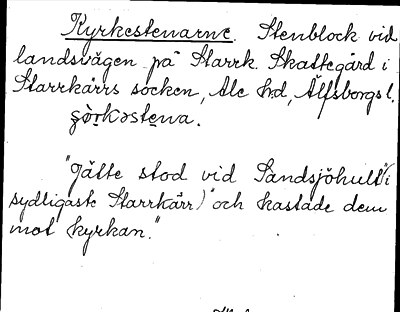 Kyrkestenarne. Stenblock vid
landsvägen på Starrk. Skattegård i
Starrkärrs socken, Ale hd, Älfsborgs l.
"Jätte stod vid Sandsjöhult" (i
sydligaste Starrkärr) "och kastade dem
mot kyrkan."